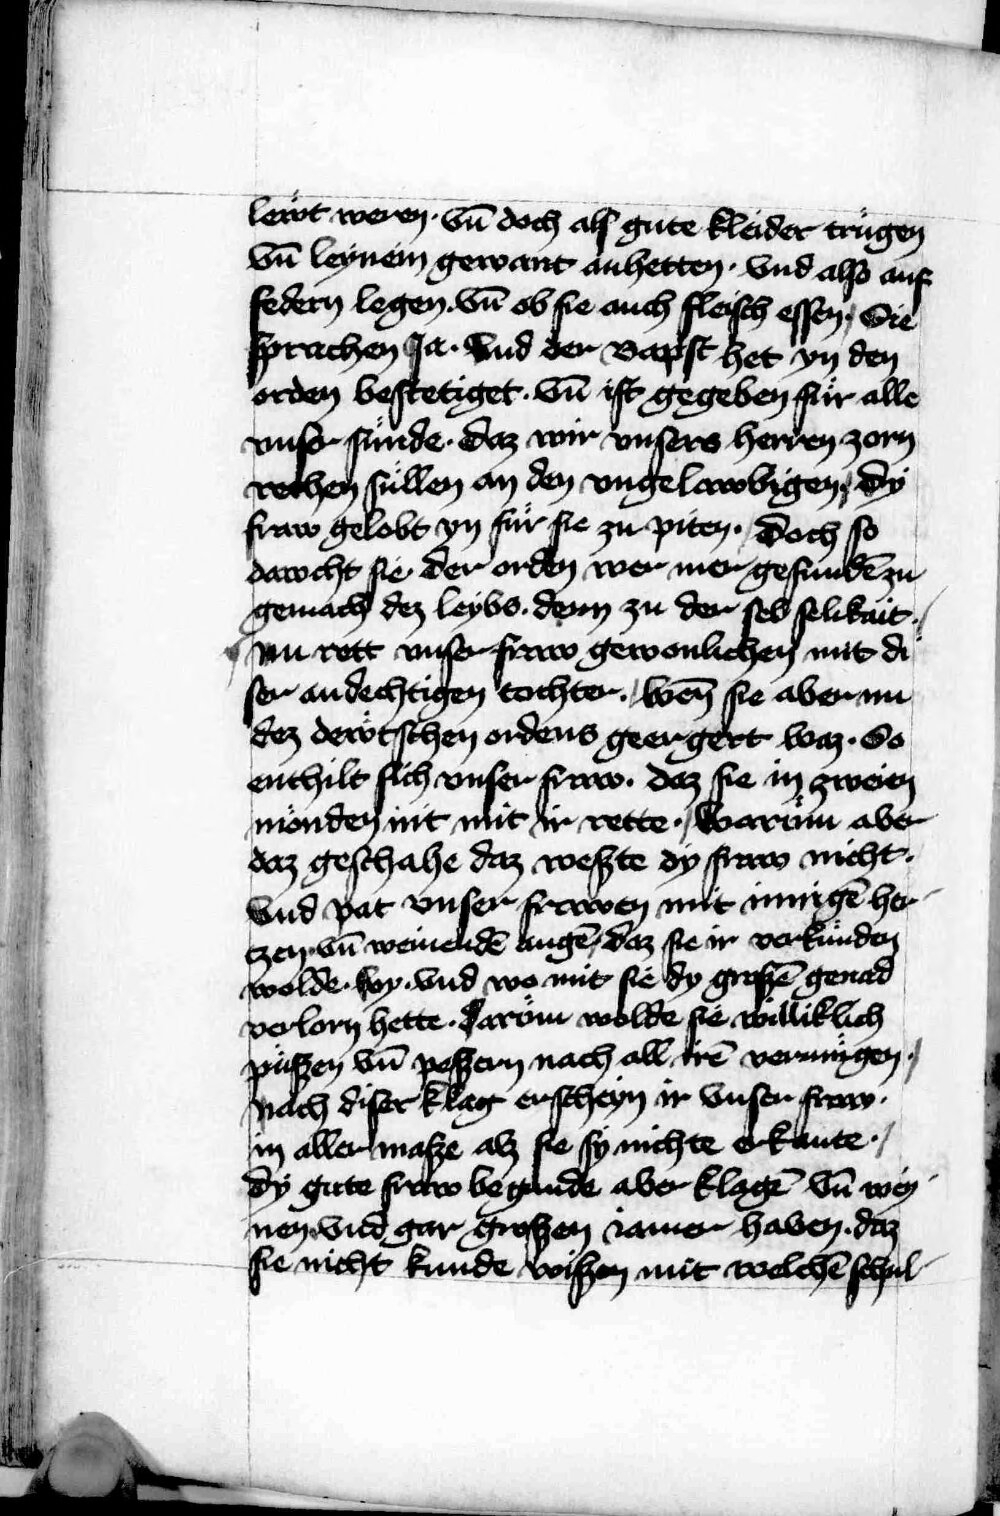 lewͤt weren. vn̄ doch als gute kleider trugen
vn̄ leynein gewant anhetten. vnd also auf
federn legen. vn̄ ob sie auch fleisch essen, Sie
sprachen Ja. vnd der Bapst het yn den
orden bestetiget. vn̄ ist gegeben fuͤr alle
vnser suͤnde. daz wir vnsers herren zorn
rechen suͤllen an den vngelawbigen, dy
fraw gelobt yn fuͤr sie zu piten. Doch so
dawcht sie der orden wer mer gefundē zu
gemach dez leybs. denn zu der sel selikait.
Nu rett vnser fraw gewonlichen mit di
ser andechtigen tochter. wen̄ sie aber nu
dez dewͤtschen ordens geergert waz. So
enthilt sich vnser fraw. daz sie in zweien
moͤnden nit mit ir rette. Waruͤm aber
daz geschahe daz weszte dy fraw nicht.
vnd pat vnser frawen mit innigē her-
tzen vn̄ weinendē augē, daz sie ir verkuͤnden
wolde. wy. vnd wo mit sie dy groszē genad
verlorn hette. Daroͤm wolde sie williklich
puͤszen vn̄ peszern nach all irē vermuͤgen.
Nach diser klag erscheyn ir vnser fraw.
in aller masze alz sie sy nichte erkante.
dy gute fraw begunde aber klagē vn̄ wey-
nen vnd gar groszen iamer haben. daz
sie nicht kunde wiszen mit welchē schul-